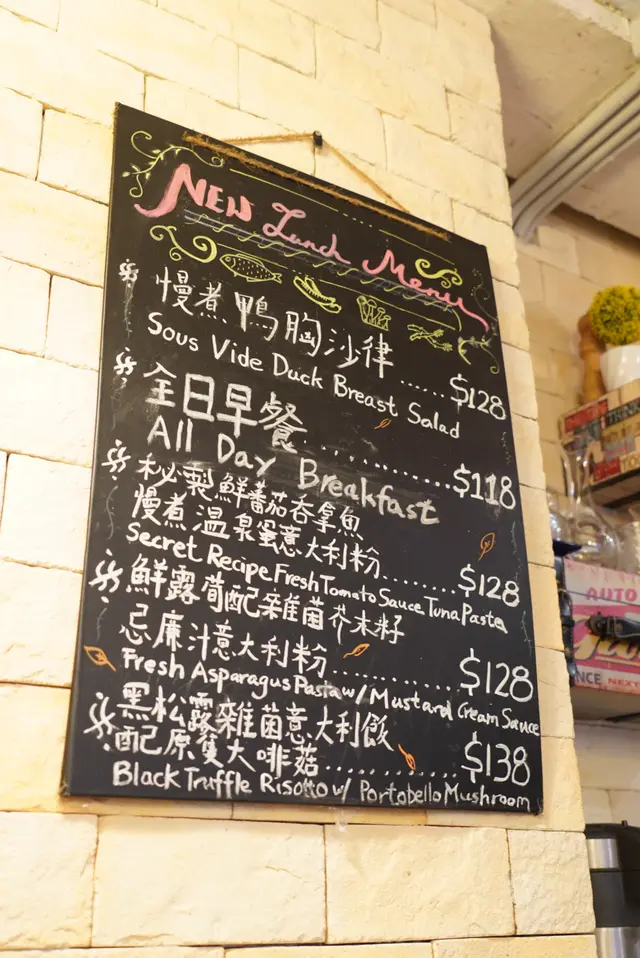 New Lunch Menu
慢煮鴨胸沙律 ...... $128
Sous Vide Duck Breast Salad
全日早餐 ............ $118
All Day Breakfast
秘製鮮蕃茄吞拿魚
慢煮溫泉蛋意大利粉 ........ $128
Secret Recipe Fresh Tomato Sauce Tuna Pasta
鮮露荀配雜菌芥末籽
忌廉汁意大利粉 ............ $128
Fresh Asparagus Pasta w/ Mustard Cream Sauce
黑松露雜菌意大利飯
配原隻大啡菇 ............ $138
Black Truffle Risotto w/ Portobello Mushroom
AUTO
NEXT